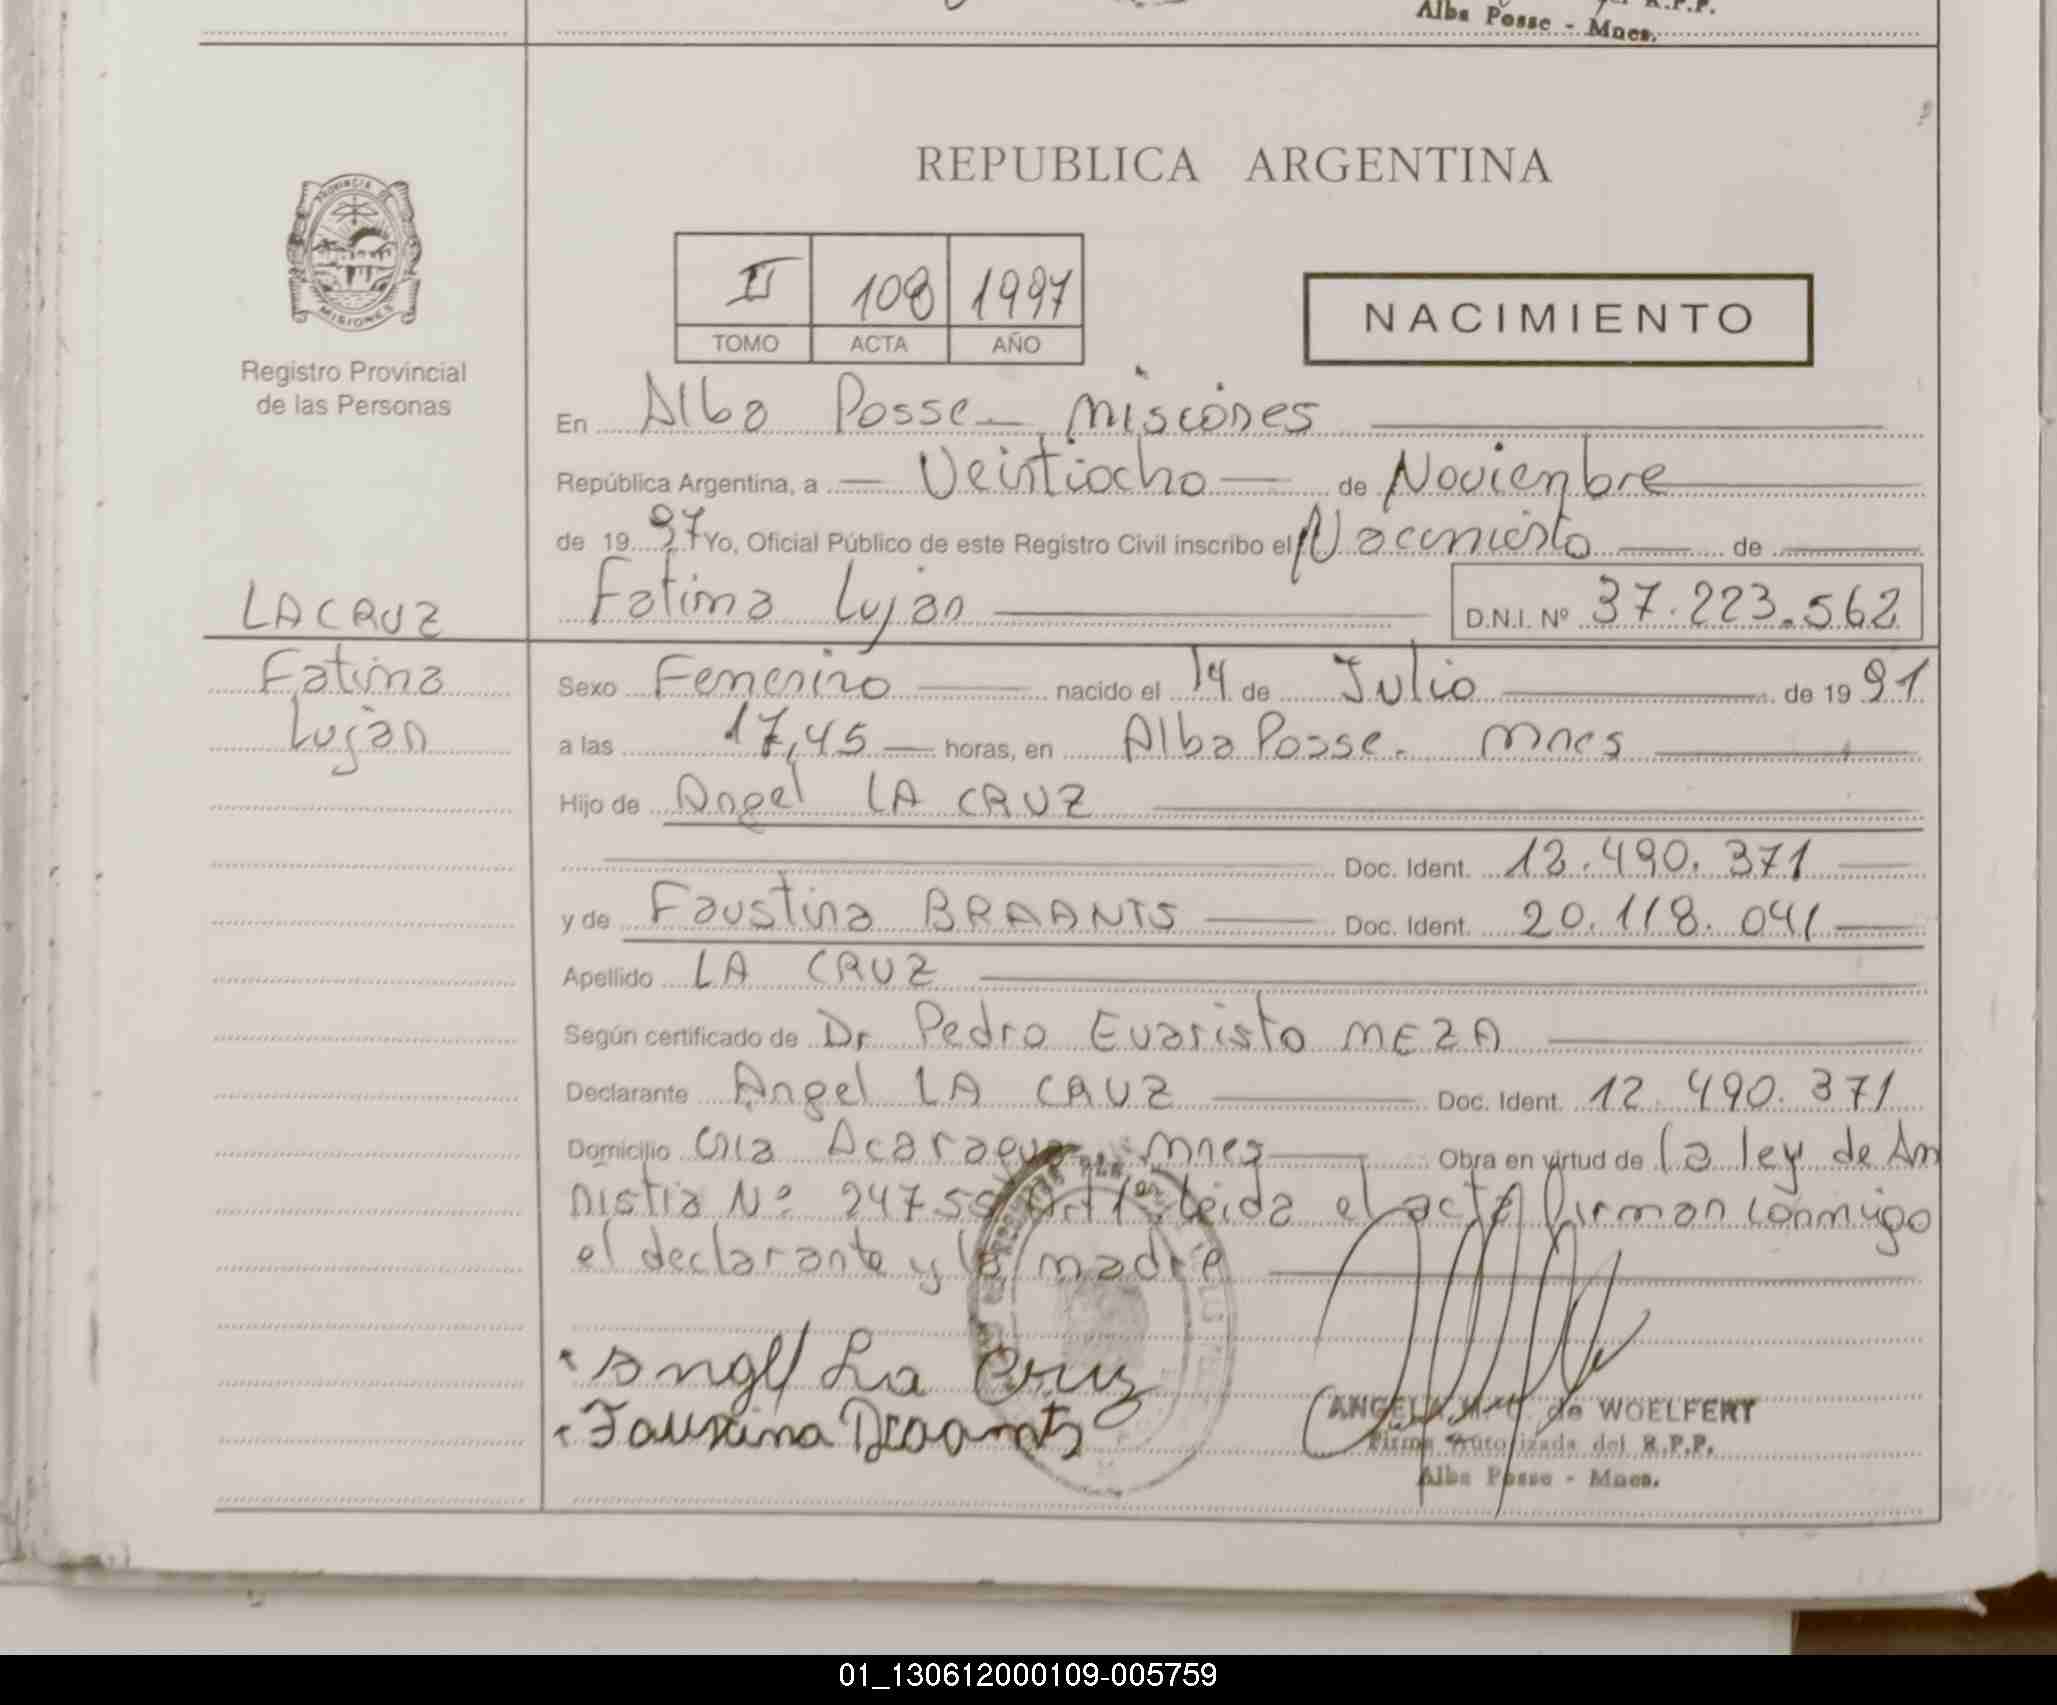 Alba Posse - Mnes.
REPUBLICA ARGENTINA
PROVINCIA DE
MISIONES
II 108 1997
TOMO ACTA AÑO
NACIMIENTO
Registro Provincial
de las Personas
En Alba Posse - Misiones
República Argentina, a Veintiocho de Noviembre
de 19 97 Yo, Oficial Público de este Registro Civil inscribo el Nacimiento de
LACRUZ Fatima Lujan D.N.I. Nº 37.223.562
Fatima Sexo Femenino nacido el 14 de Julio de 19 91
Lujan a las 17,45 horas, en Alba Posse. Mnes
Hijo de Angel LA CRUZ
Doc. Ident. 12.490.371
y de Faustina BRAANTS Doc. Ident. 20.118.041
Apellido LA CRUZ
Según certificado de Dr Pedro Evaristo MEZA
Declarante Angel LA CRUZ Doc. Ident. 12.490.371
Domicilio Mnes Obra en virtud de la ley de Am
nistia Nº 24755 leida el acta firman conmigo
el declarante y la madre
Angel La Cruz
Faustina Braants
de WOELFERT
Firma Autorizada del R.P.P.
Alba Posse - Mnes.
01_130612000109-005759